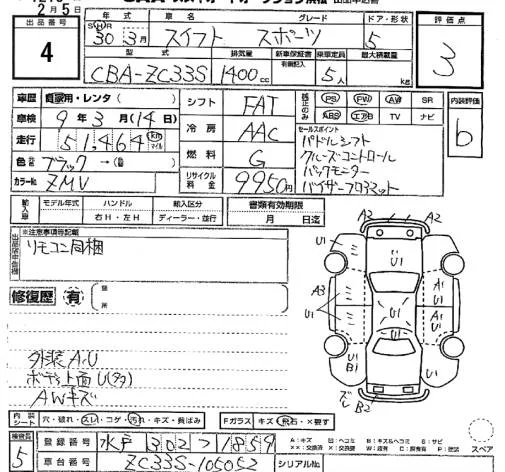 2月5日
出品番号
4
年式 車名 グレード ドア・形状
S・H・R
30年 3月 スイフト スポーツ 5
型式 排気量 新車保証書 乗車定員 最大積載量
有無記入
CBA-ZC33S 1400cc 5人 kg
評価点
3
車歴 自家用・レンタ( )
車検 9年3月(14日)
走行 51,464 km マイル
色 ブラック→( )
カラーNo ZMV
シフト FAT
冷房 AAC
燃料 G
リサイクル料金 9950円
純正のみ PS PW AW SR
ABS エアB TV ナビ
セールスポイント
パドルシフト
クルーズコントロール
バックモニター
バイザーフロアマット
内装評価
b
輸入車 モデル年式 ハンドル 輸入区分
年 右H・左H ディーラー・並行
書類有効期限
月 日迄
出品店申告欄
※注意事項等記載
リモコン同梱
修復歴 有
箇所
外装A,U
ボディ上面U(多タ)
AWキズ
A2 A2
U1 U1
A1 U1
A3 U1 U1 A1 U1
U1 U1
U1 B1
ズレ B2
内装シート 穴・破れ・スレ・コゲ・汚れ・キズ・黄ばみ
Fガラス キズ・飛石・×要す
検査員 5
登録番号 水戸 302 つ 1859
車台番号 ZC33S-105052
シリアルNo
A:キズ U:ヘコミ B:キズ&ヘコミ S:サビ
スペア